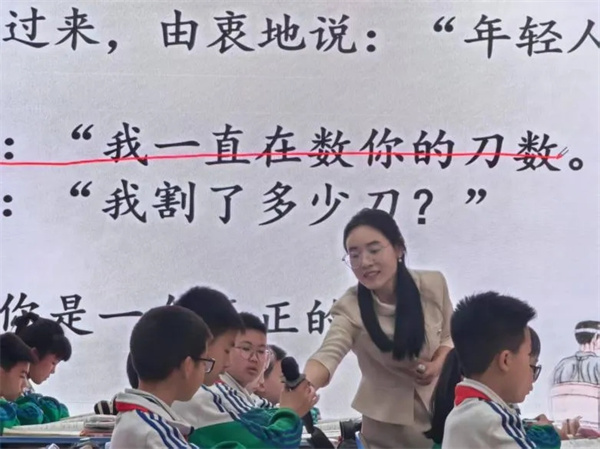 过来，由衷地说：“年轻人
：“我一直在数你的刀数。
：“我割了多少刀？”
你是一个真正的